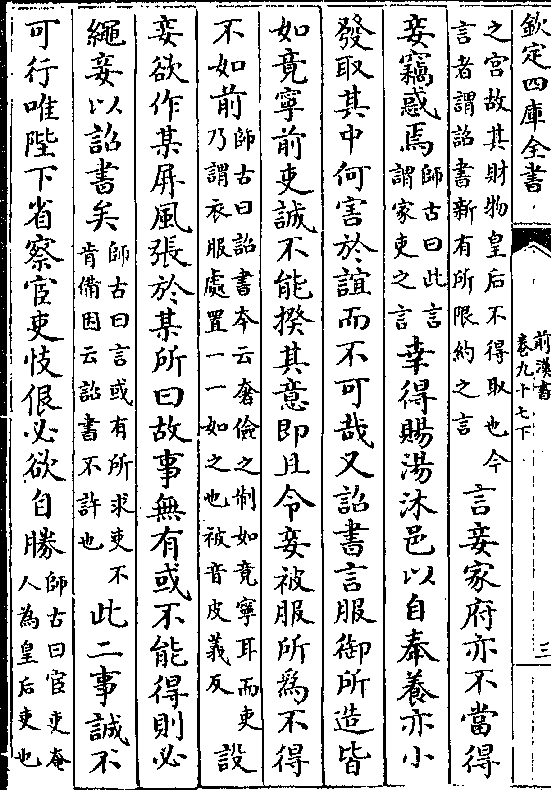 欽定四庫全書
前漢書
卷九十七下
三
之宫故其財物皇后不得取也今
言者謂詔書新有所限約之言
言妾家府亦不當得
妾竊惑焉師古曰此言
謂家吏之言
幸得賜湯沐邑以自奉養亦小
發取其中何害於誼而不可哉又詔書言服御所造皆
如竟寧前吏誠不能揆其意即且令妾被服所為不得
不如前師古曰詔書本云奢儉之制如竟寧耳而吏
乃謂衣服處置一一如之也被音皮義反
設
妾欲作某屏風張於某所曰故事無有或不能得則必
繩妾以詔書矣師古曰言或有所求吏不
肯備因云詔書不許也
此二事誠不
可行唯陛下省察宦吏忮佷必欲自勝師古曰宦吏奄
人為皇后吏也